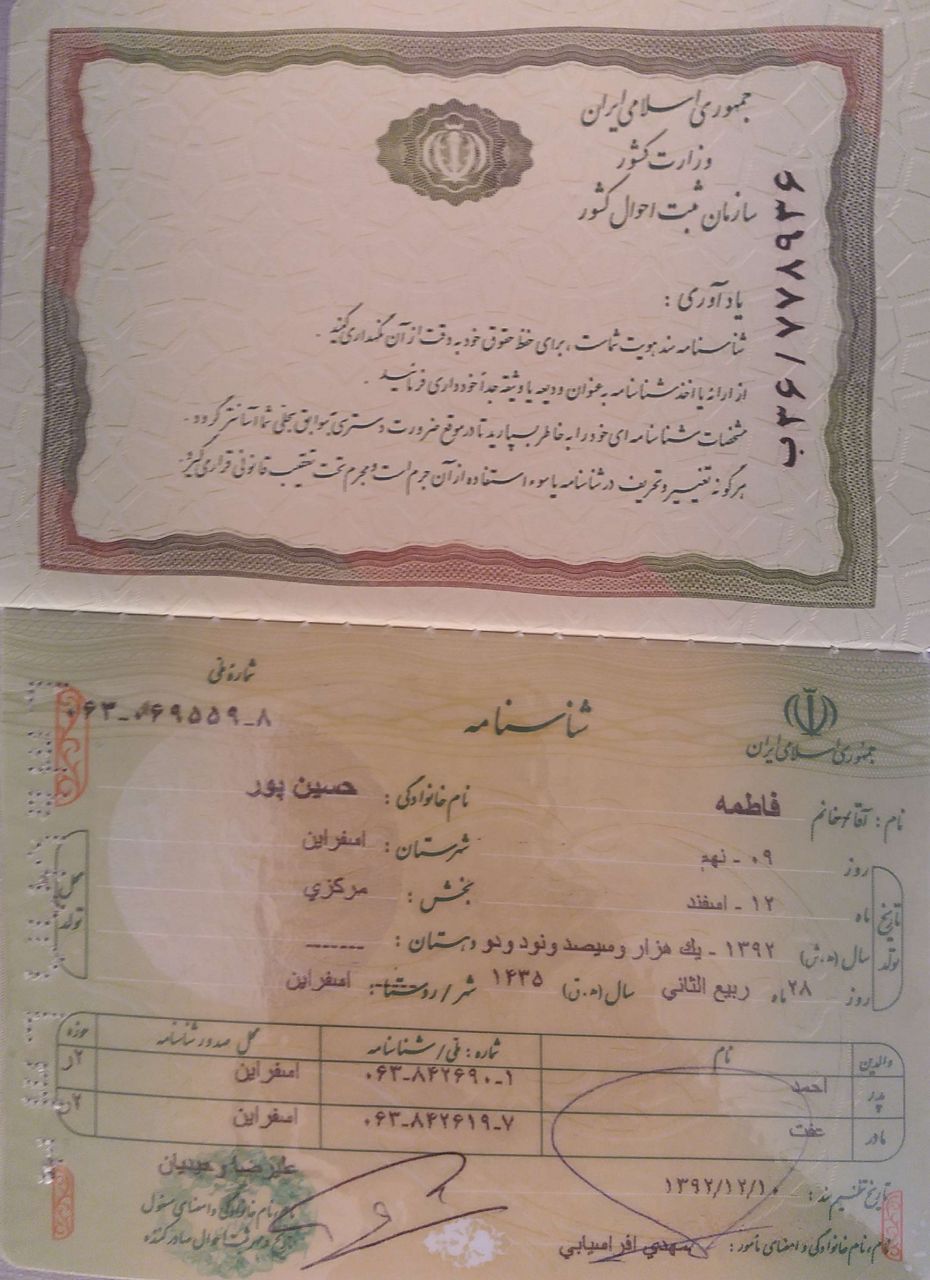 جمهوری اسلامی ایران
وزارت کشور
سازمان ثبت احوال کشور
ب۳۶/۷۷۸۹۳۶
یادآوری :
شناسنامه سند هویت شماست ، برای حفظ حقوق خود به دقت از آن نگهداری کنید .
از ارائه یا اخذ شناسنامه به عنوان ودیعه یا وثیقه جداً خودداری فرمائید .
مشخصات شناسنامه ای خود را به خاطر بسپارید تا در موقع ضرورت دسترسی به سوابق سجلی شما آسانتر گردد .
هرگونه تغییر و تحریف در شناسنامه یا سوء استفاده از آن جرم است و مجرم تحت تعقیب قانونی قرار می گیرد .
جمهوری اسلامی ایران
شناسنامه
شماره ملی
۰۶۳-۰۶۹۵۵۹-۸
نام : آقا/خانم فاطمه نام خانوادگی : حسین پور
تاریخ تولد
روز ۰۹ - نهم شهرستان : اسفراین
ماه ۱۲ - اسفند بخش : مرکزي
سال (ه.ش) ۱۳۹۲ - يك هزار وسيصد ونود ودو دهستان : -------
روز ۲۸ ماه ربيع الثاني سال (ه.ق) ۱۴۳۵ شهر/روستا : اسفراین
محل تولد
والدین نام شماره : ملی/شناسنامه محل صدور شناسنامه حوزه
پدر احمد ۰۶۳-۸۴۲۶۹۰-۱ اسفراین ۲ر
مادر عفت ۰۶۳-۸۴۲۶۱۹-۷ اسفراین
تاریخ تنظیم سند : ۱۳۹۲/۱۲/۱۰
نام، نام خانوادگی و امضای مامور : مهدي افراسيابي
نام، نام خانوادگی و امضای مسئول
و مهر ثبت احوال صادرکننده